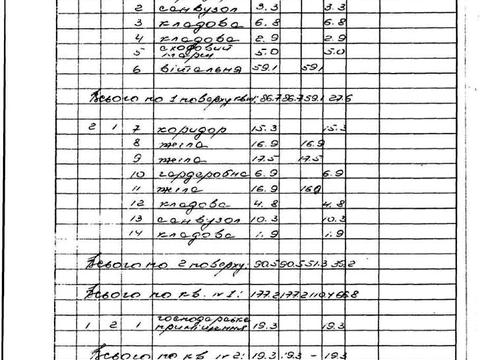 2 санвузол 3.3 3.3
3 кладова 6.8 6.8
4 кладова 2.9 2.9
5 сходовий марш 5.0 5.0
6 вітальня 59.1 59.1
Всього по 1 поверху кв.м: 86.7 86.7 59.1 27.6
2 1 7 коридор 15.3 15.3
8 жила 16.9 16.9
9 жила 17.5 17.5
10 гардеробна 6.9 6.9
11 жила 16.9 16.9
12 кладова 4.8 4.8
13 санвузол 10.3 10.3
14 кладова 1.9 1.9
Всього по 2 поверху: 90.5 90.5 51.3 39.2
Всього по кв. №1: 177.2 177.2 110.4 66.8
1 2 1 господарське приміщення 19.3 19.3
Всього по кв. №2: 19.3 19.3 - 19.3